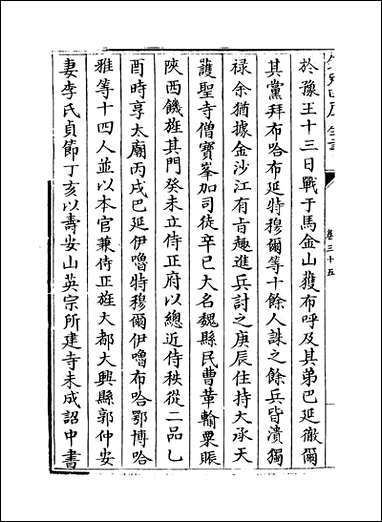 欽定四庫全書
卷三十五
於豫王十三日戰于馬金山獲布呼及其弟巴延徹爾
其黨拜布哈布延特穆爾等十餘人誅之餘兵皆潰獨
禄余猶據金沙江有旨趣進兵討之庚辰住持大承天
護聖寺僧寶峯加司徒辛巳大名魏縣民曹革輸粟賑
陜西饑旌其門癸未立侍正府以總近侍秩從二品乙
酉時享太廟丙戌巴延伊嚕特穆爾伊嚕布哈鄂博哈
雅等十四人並以本官兼侍正旌大都大興縣郭仲安
妻李氏貞節丁亥以壽安山英宗所建寺未成詔中書